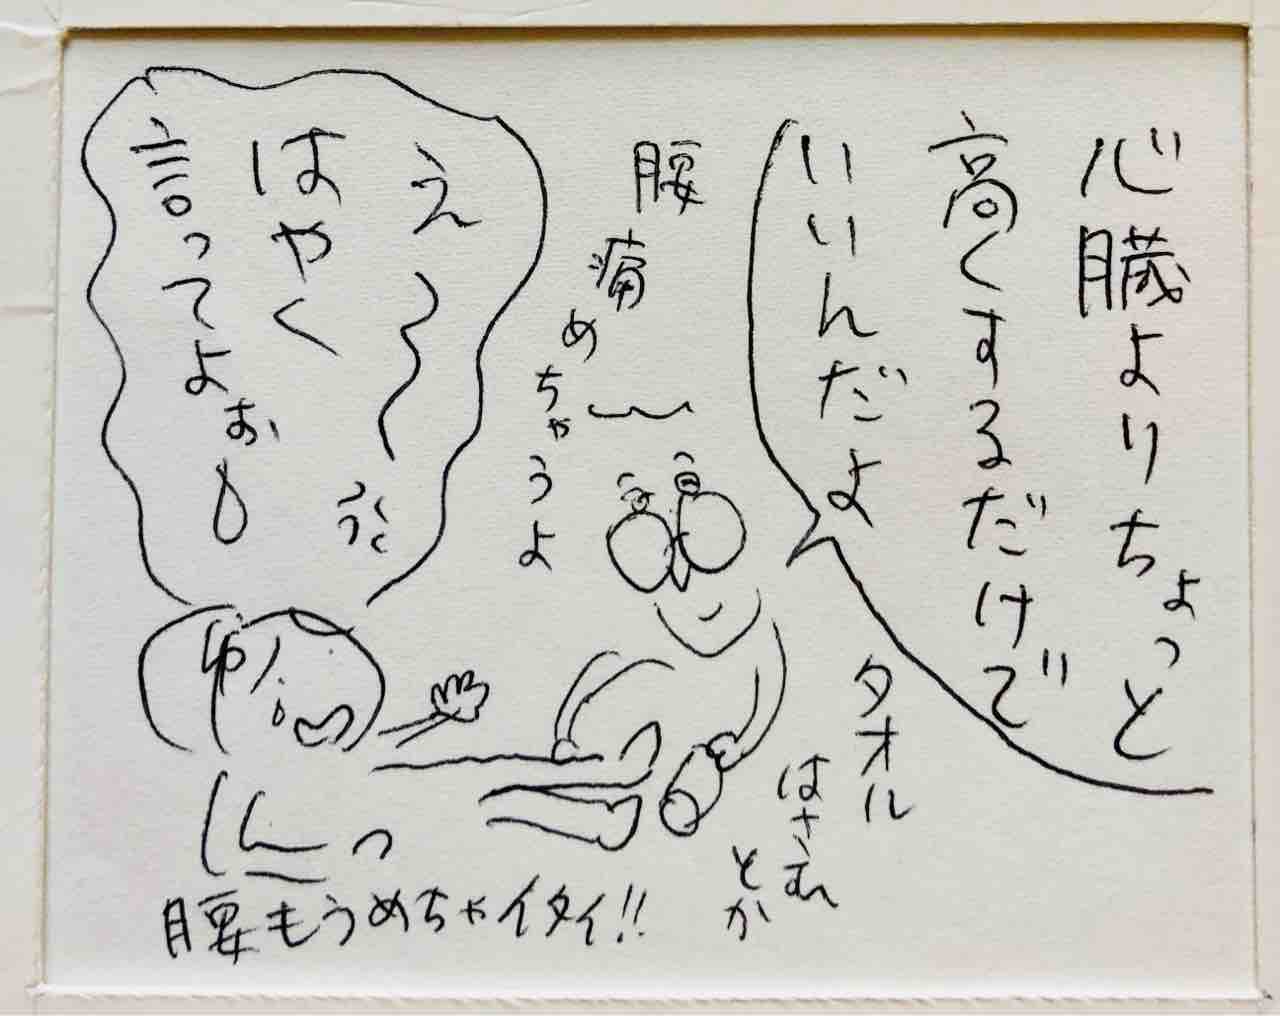 心臓よりちょっと
高くするだけで
いいんだよ
腰痛めちゃうよ
タオル
はさむ
とか
え〜
はやく
言ってよぉ
腰もうめちゃイタイ!!